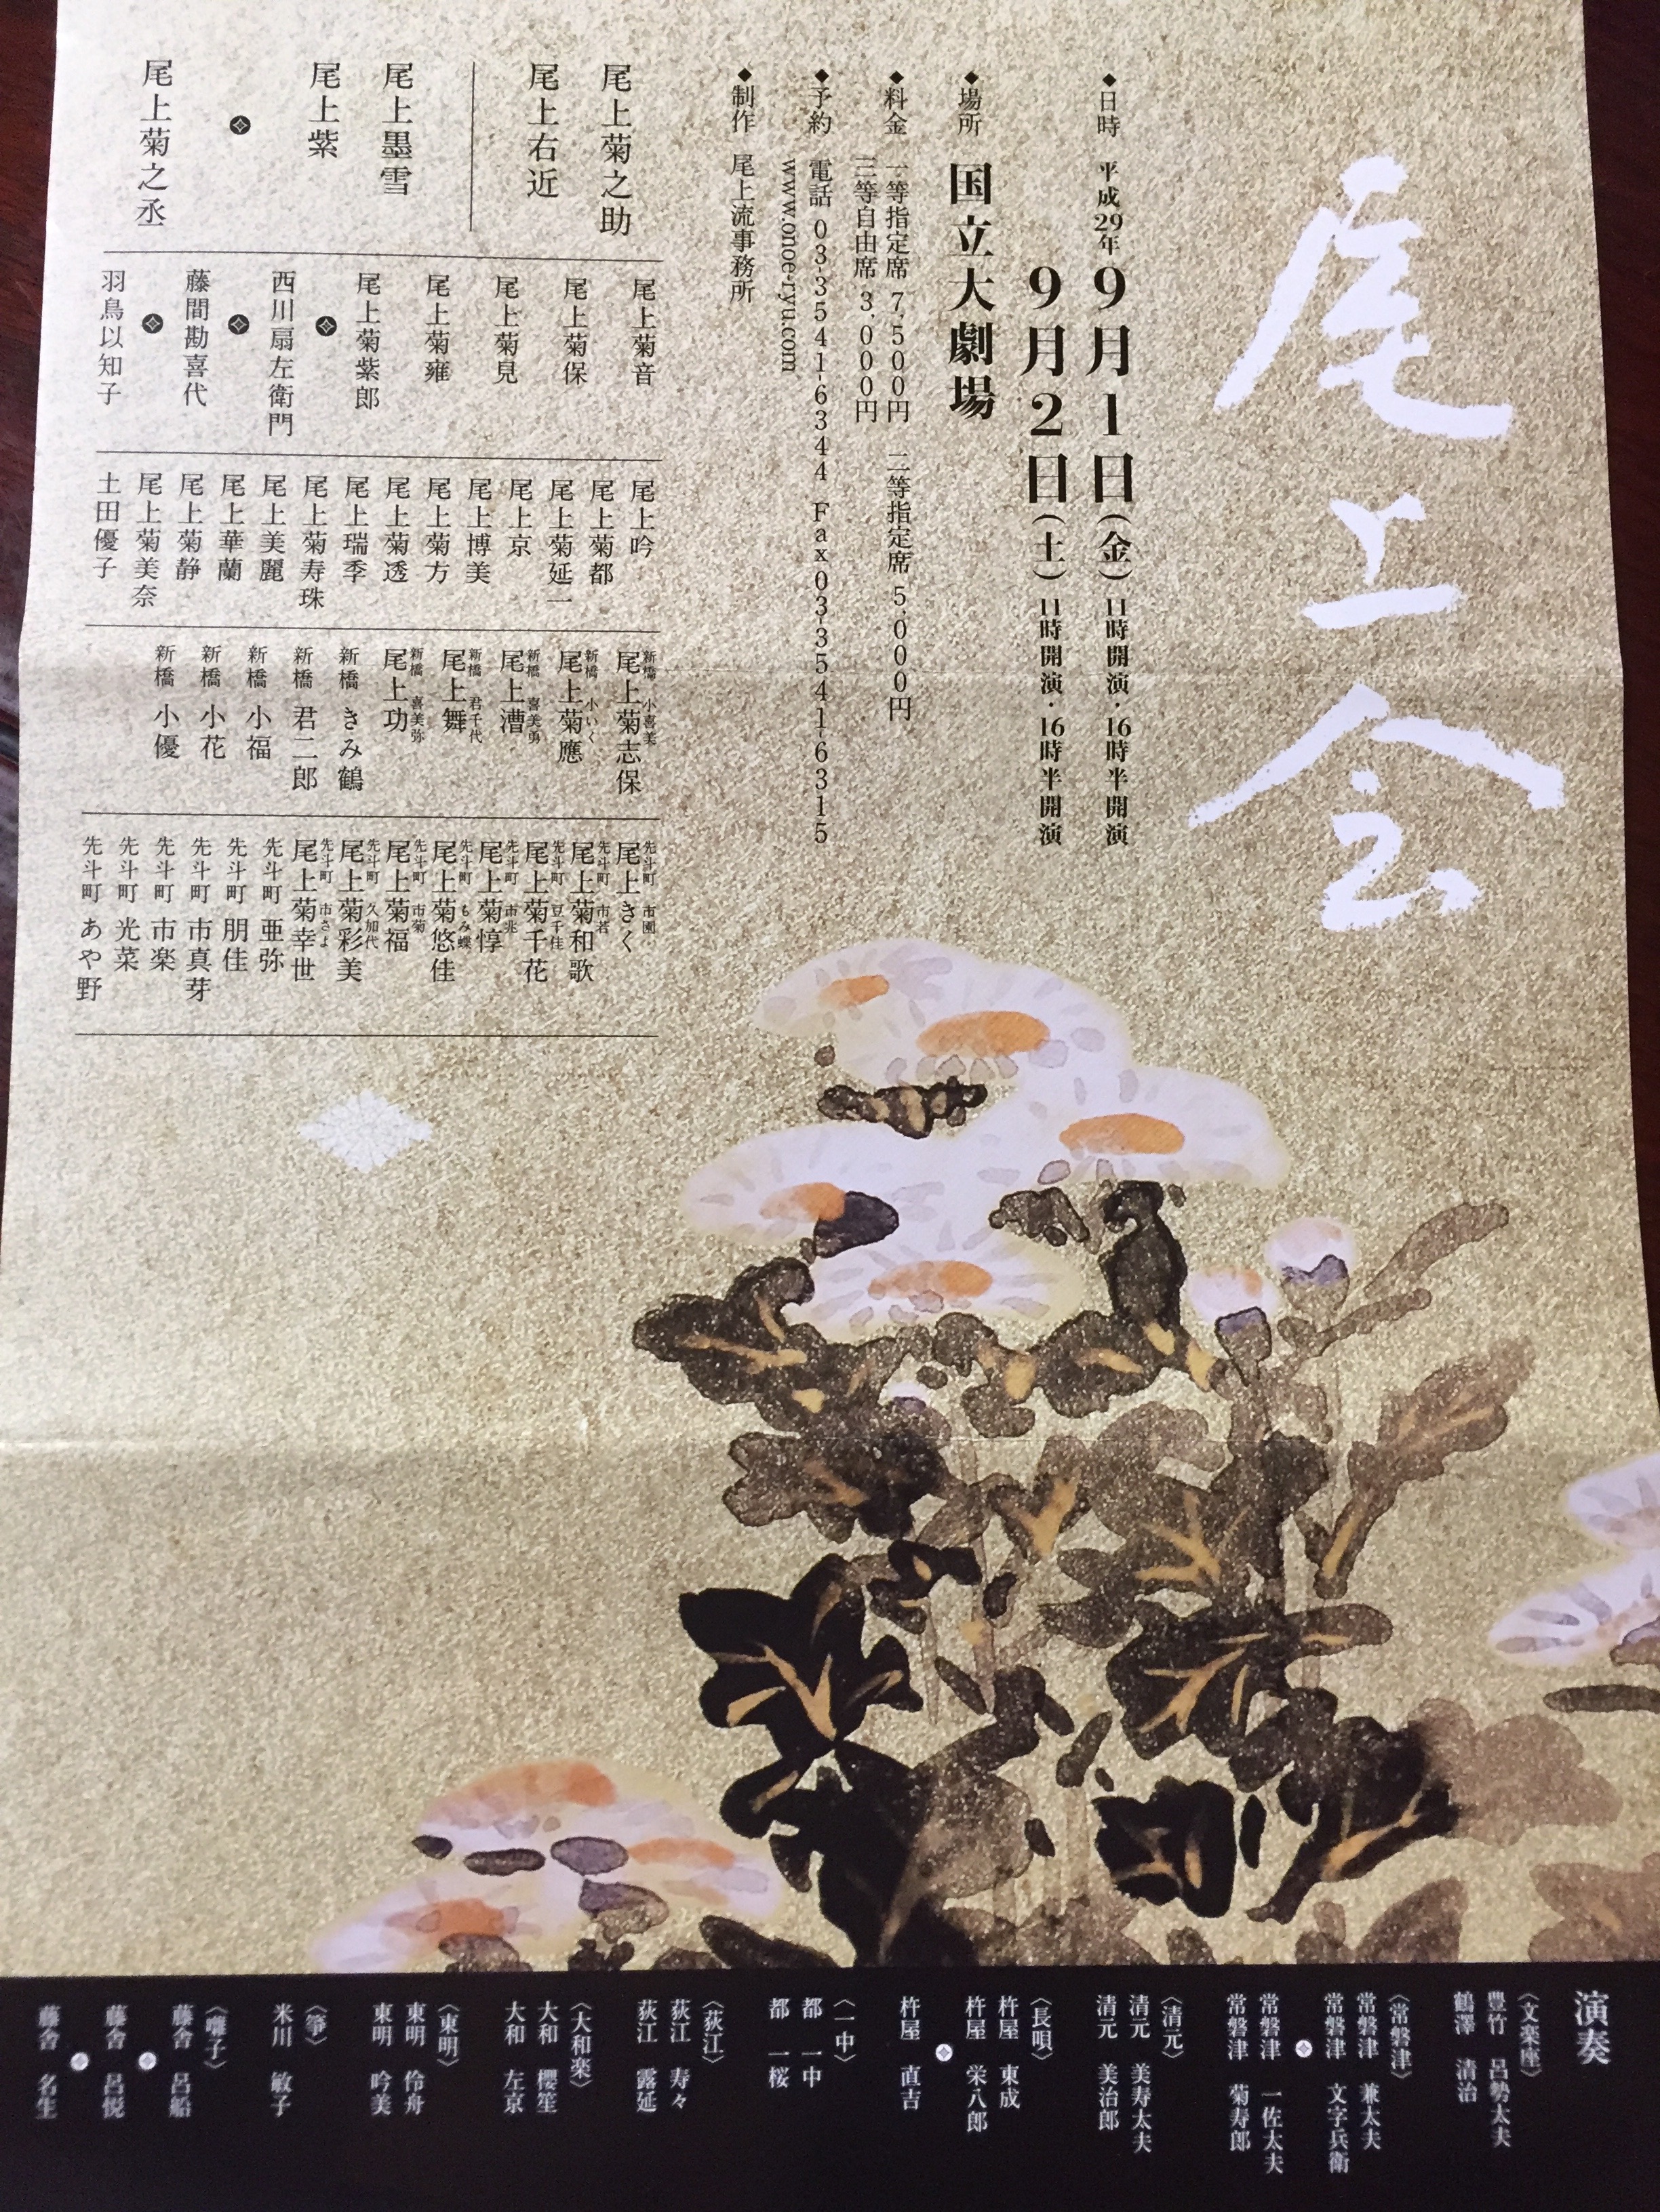 尾上会
◆日時 平成29年 9月1日(金) 11時開演・16時半開演
9月2日(土) 11時開演・16時半開演
◆場所 国立大劇場
◆料金 一等指定席 7,500円 二等指定席 5,000円
三等自由席 3,000円
◆予約 電話 03-3541-6344 Fax 03-3541-6315
www.onoe-ryu.com
◆制作 尾上流事務所
尾上菊之助
尾上右近
尾上墨雪
尾上紫
尾上菊之丞
尾上菊音
尾上菊保
尾上菊見
尾上菊雍
尾上菊紫郎
西川扇左衛門
藤間勘喜代
羽鳥以知子
尾上吟
尾上菊都
尾上菊延二
尾上京
尾上博美
尾上菊方
尾上菊透
尾上瑞季
尾上菊寿珠
尾上美麗
尾上華蘭
尾上菊静
尾上菊美奈
土田優子
新橋 小喜美
尾上菊志保
新橋 小いく
尾上菊應
新橋 喜美勇
尾上漕
新橋 君千代
尾上舞
新橋 喜美弥
尾上功
新橋 きみ鶴
新橋 君二郎
新橋 小福
新橋 小花
新橋 小優
先斗町 市園
尾上きく
先斗町 市若
尾上菊和歌
先斗町 豆千佳
尾上菊千花
先斗町 市兆
尾上菊惇
先斗町 もみ蝶
尾上菊悠佳
先斗町 市菊
尾上菊福
先斗町 久加代
尾上菊彩美
先斗町 市さよ
尾上菊幸世
先斗町 亜弥
先斗町 朋佳
先斗町 市真芽
先斗町 市楽
先斗町 光菜
先斗町 あや野
演奏
〈文楽座〉
豊竹 呂勢太夫
鶴澤 清治
〈常磐津〉
常磐津 兼太夫
常磐津 文字兵衛
常磐津 一佐太夫
常磐津 菊寿郎
〈清元〉
清元 美寿太夫
清元 美治郎
〈長唄〉
杵屋 東成
杵屋 栄八郎
杵屋 直吉
〈一中〉
都 一中
都 一桜
〈荻江〉
荻江 寿々
荻江 露延
〈大和楽〉
大和 櫻笙
大和 左京
〈東明〉
東明 伶舟
東明 吟美
〈箏〉
米川 敏子
〈囃子〉
藤舎 呂船
藤舎 呂悦
藤舎 名生